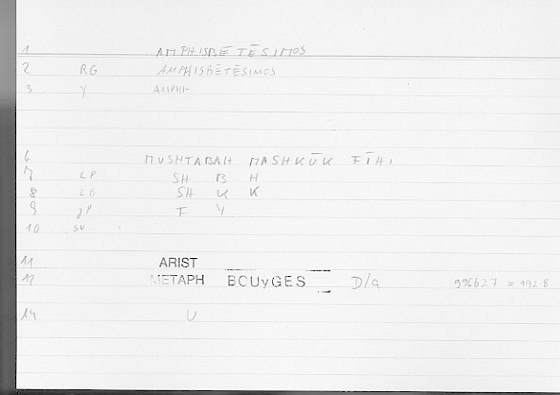 1 AMPHISBĒTĒSIMOS
2 RG AMPHISBĒTĒSIMOS
3 Y AMPHI-
6 MUSHTABAH MASHKŪK FĪHI
7 LP SH B H
8 LG SH K K
9 JP F Y
10 SV
11 ARIST
12 METAPH BOUyGES D/a 996b27 = 192.8
14 U